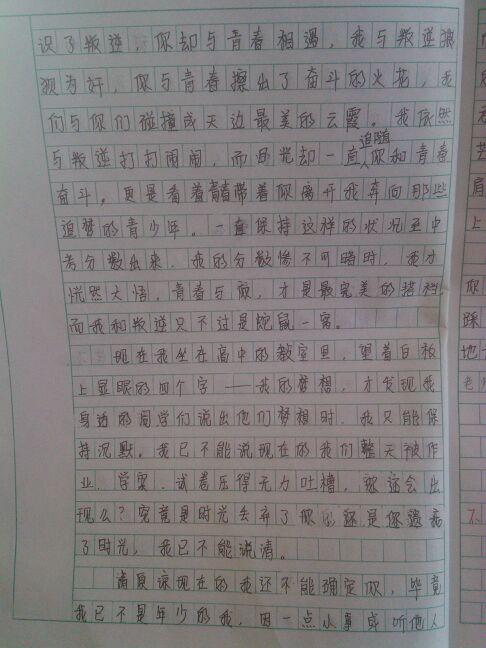 识了叛逆，你却与青春相遇，我与叛逆狼
狈为奸，你与青春擦出了奋斗的火花，我
们与你们碰撞成天边最美的云霞。我依然
与叛逆打打闹闹，而目光却一直追随你和青春
奋斗。更是看着青春带着你离开我奔向那些
追梦的青少年。一直保持这样的状况至中
考分数出来，我的分数惨不可睹时，我才
恍然大悟，青春与你，才是最完美的搭档
而我和叛逆只不过是蛇鼠一窝。
现在我坐在高中的教室里，望着白板
上显眼的四个字——我的梦想，才发现我
身边的同学们说出他们梦想时，我只能保
持沉默。我已不能说现在的我们整天被作
业、学案、试卷压得无力吐槽，你还会出
现么？究竟是时光丢弃了你，还是你遗弃
了时光，我已不能说清。
请原谅现在的我还不能确定你，毕竟
我已不是年少的我，因一点小事或听他人